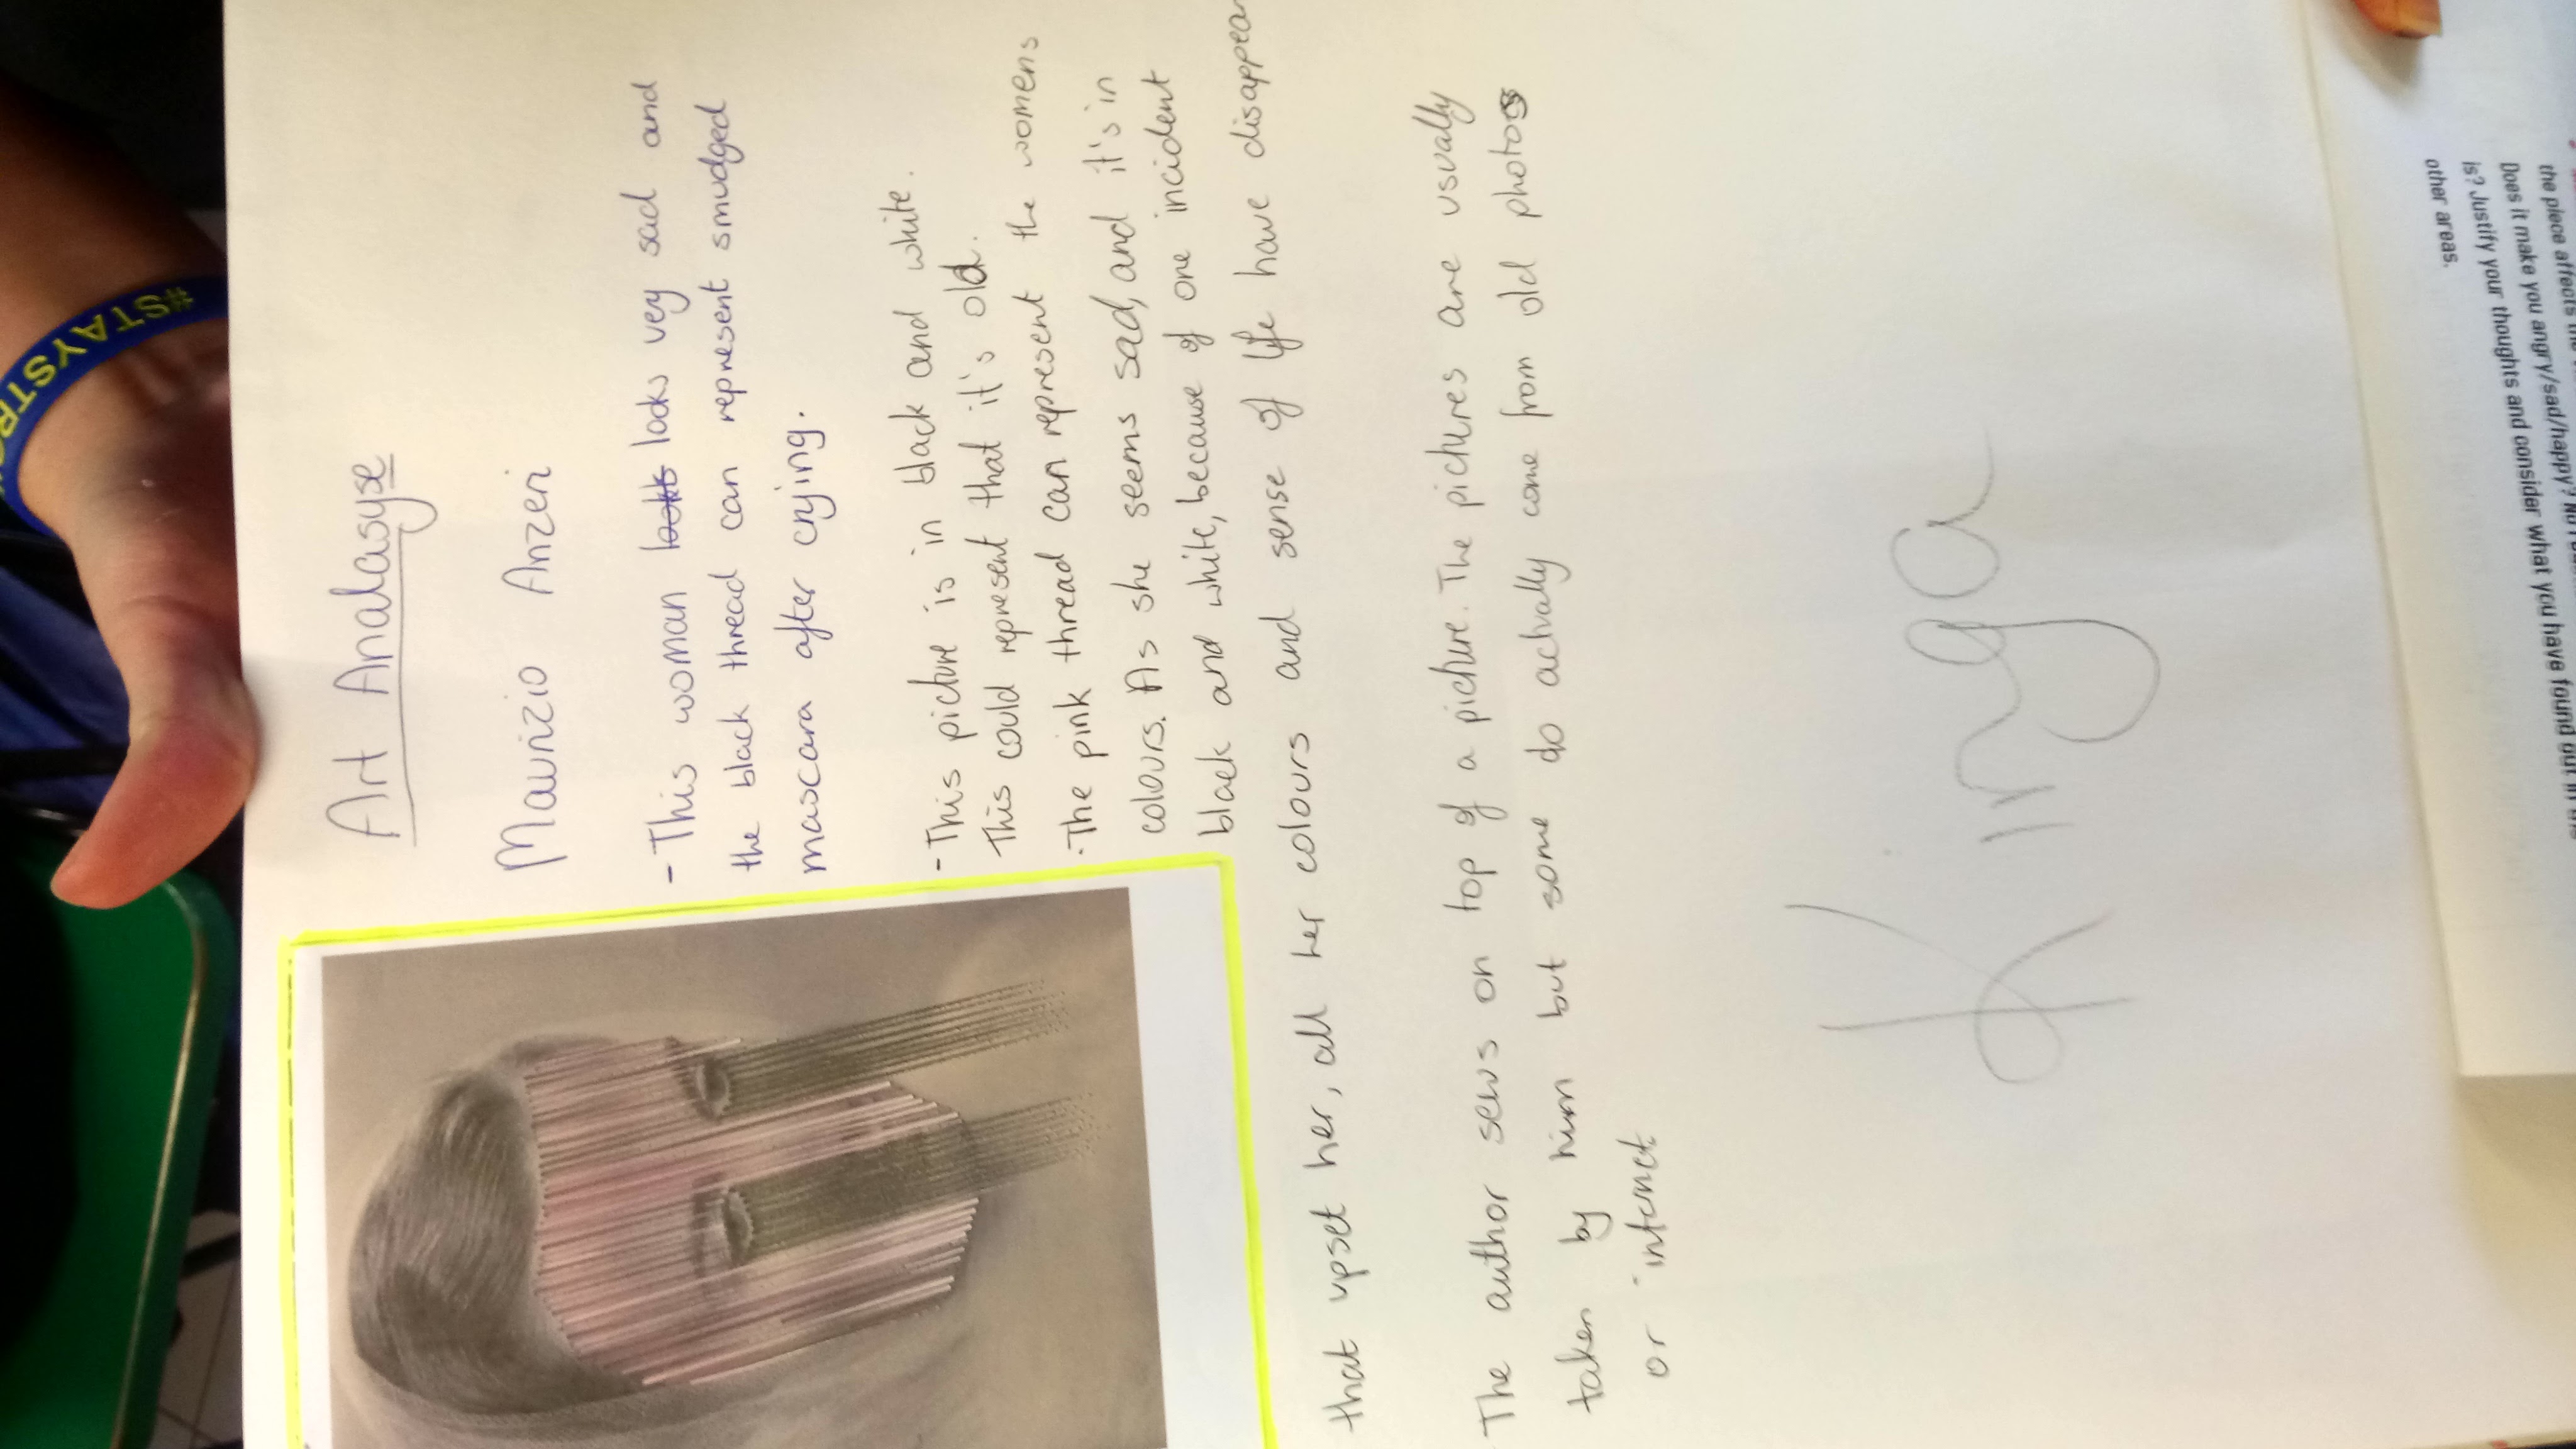 Art Analasyse
Maurizio Anzeri
- This woman looks very sad and
the black thread can represent smudged
mascara after crying.
- This picture is in black and white.
This could represent that it's old.
- The pink thread can represent the womens
colours. As she seems sad, and it's in
black and white, because of one incident
that upset her, all her colours and sense of life have disappear
- The author sews on top of a picture. The pictures are usually
taken by him but some do actually come from old photos
or internet.
Kinga
#STAYSTRO
the piece affects
Does it make you angry/sad/happy?
is? Justify your thoughts and consider what you have found out in the
other areas.